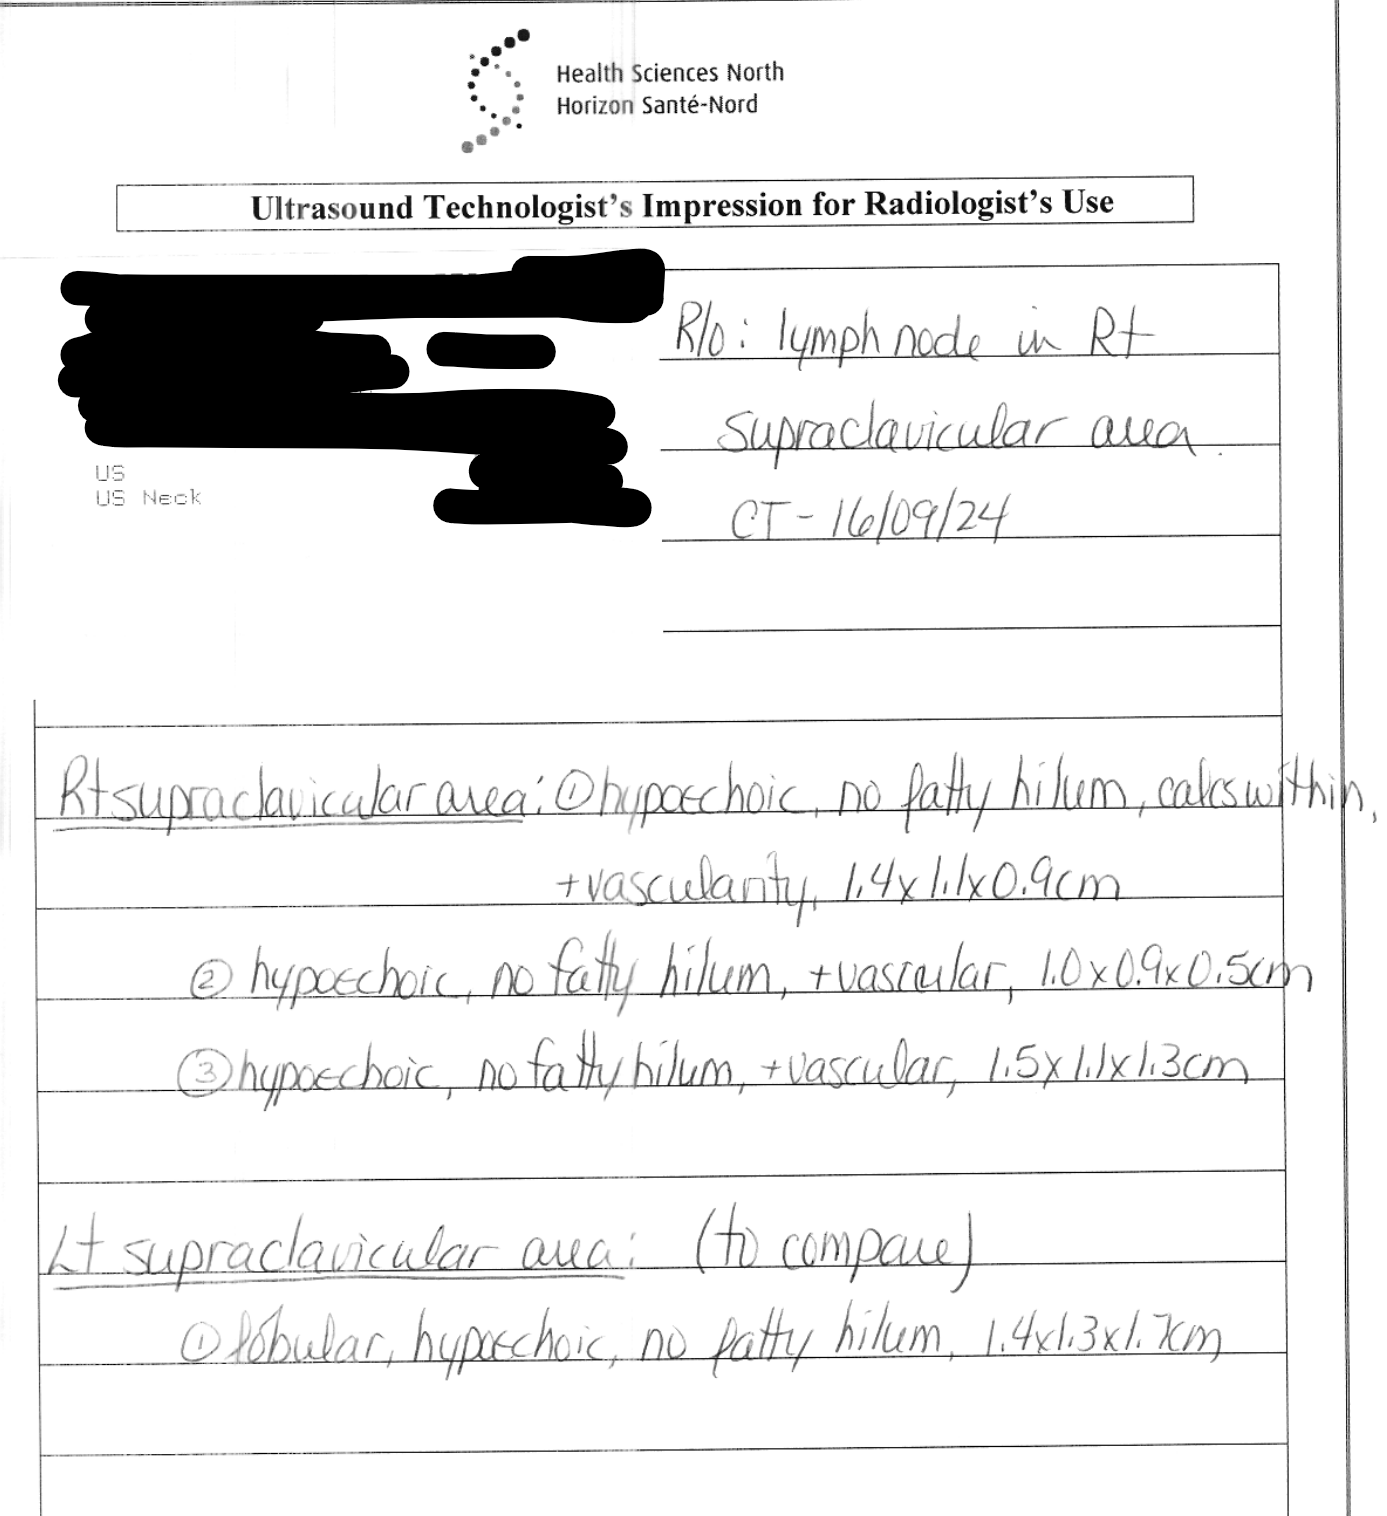 Health Sciences North
Horizon Santé-Nord
Ultrasound Technologist's Impression for Radiologist's Use
R/o: lymph node in Rt
supraclavicular area.
CT - 16/09/24
US
US Neck
Rt supraclavicular area: ① hypoechoic, no fatty hilum, calcs within,
+vascularity, 1.4x1.1x0.9cm
② hypoechoic, no fatty hilum, +vascular, 1.0x0.9x0.5cm
③ hypoechoic, no fatty hilum, +vascular, 1.5x1.1x1.3cm
Lt supraclavicular area: (to compare)
① lobular, hypoechoic, no fatty hilum, 1.4x1.3x1.7cm